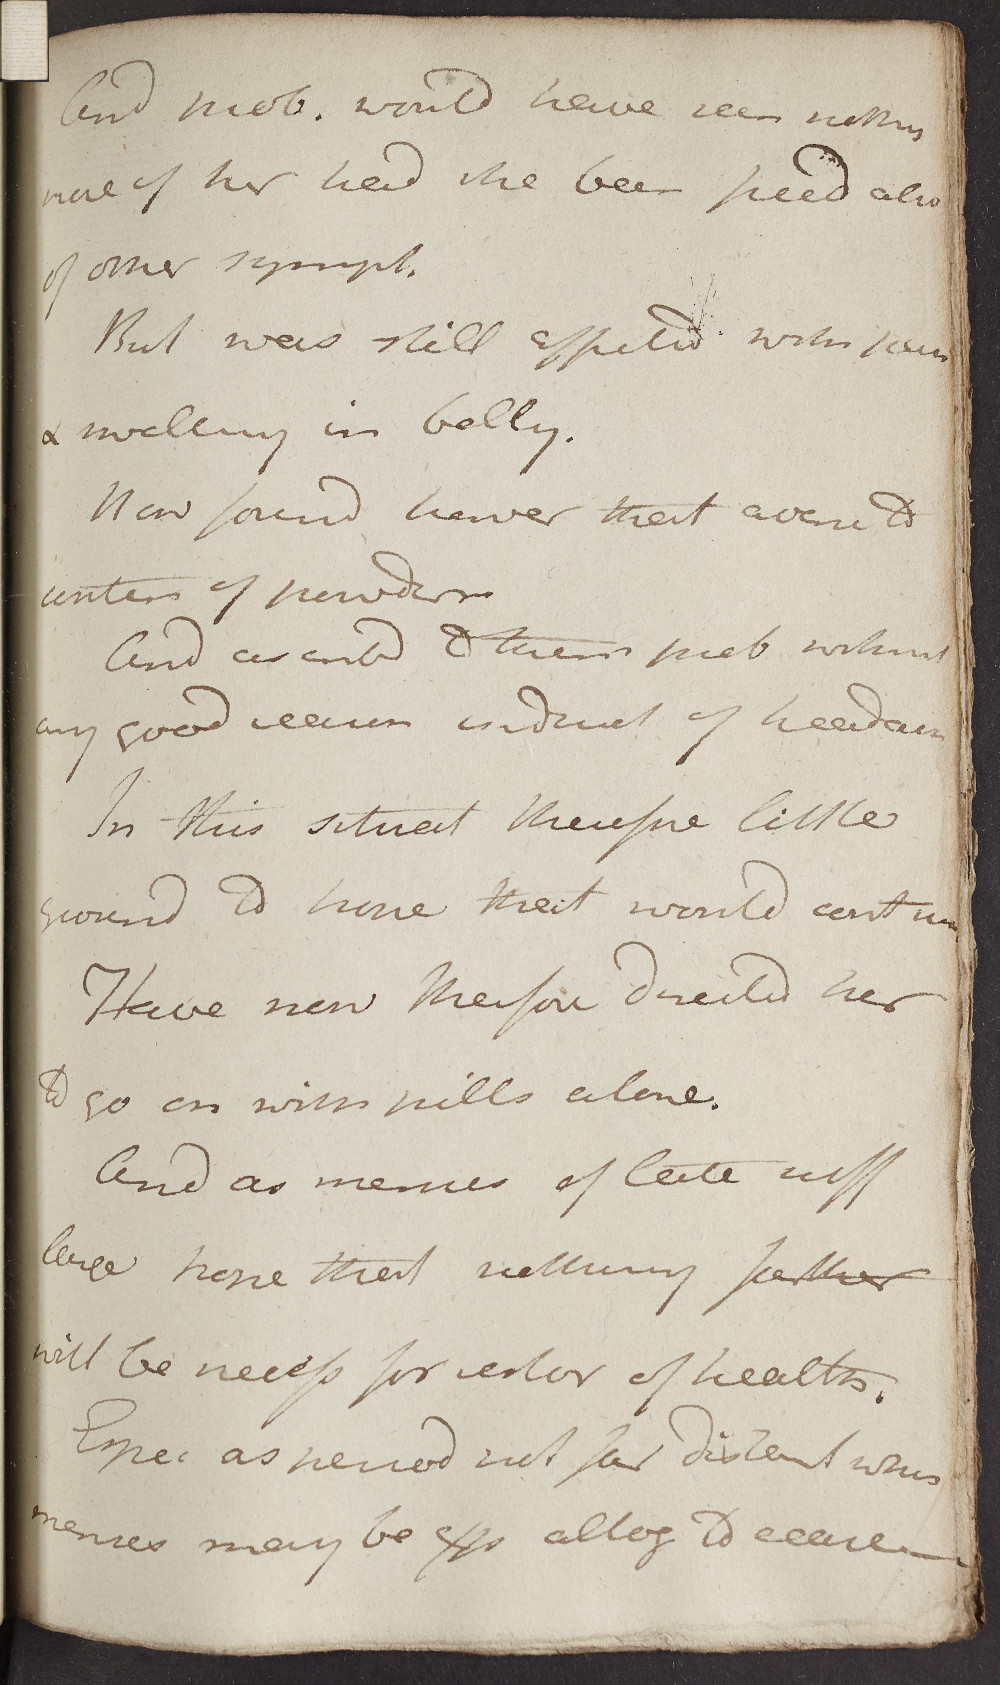 And prob. would have seen nothing
more of her had she been freed also
of other sympt.
But was still affected with pain
& swelling in belly.
Now found however that averse to
contin of powders
And as ascribd to them prob without
any good reason induct of headach
In this situat therefore little
ground to hope that would continue
Have now therefore directed her
to go on with pills alone.
And as menses of late suff
large hope that nothing farther
will be necess for restor of health.
Espec as period not far distant when
menses may be exp altog to cease